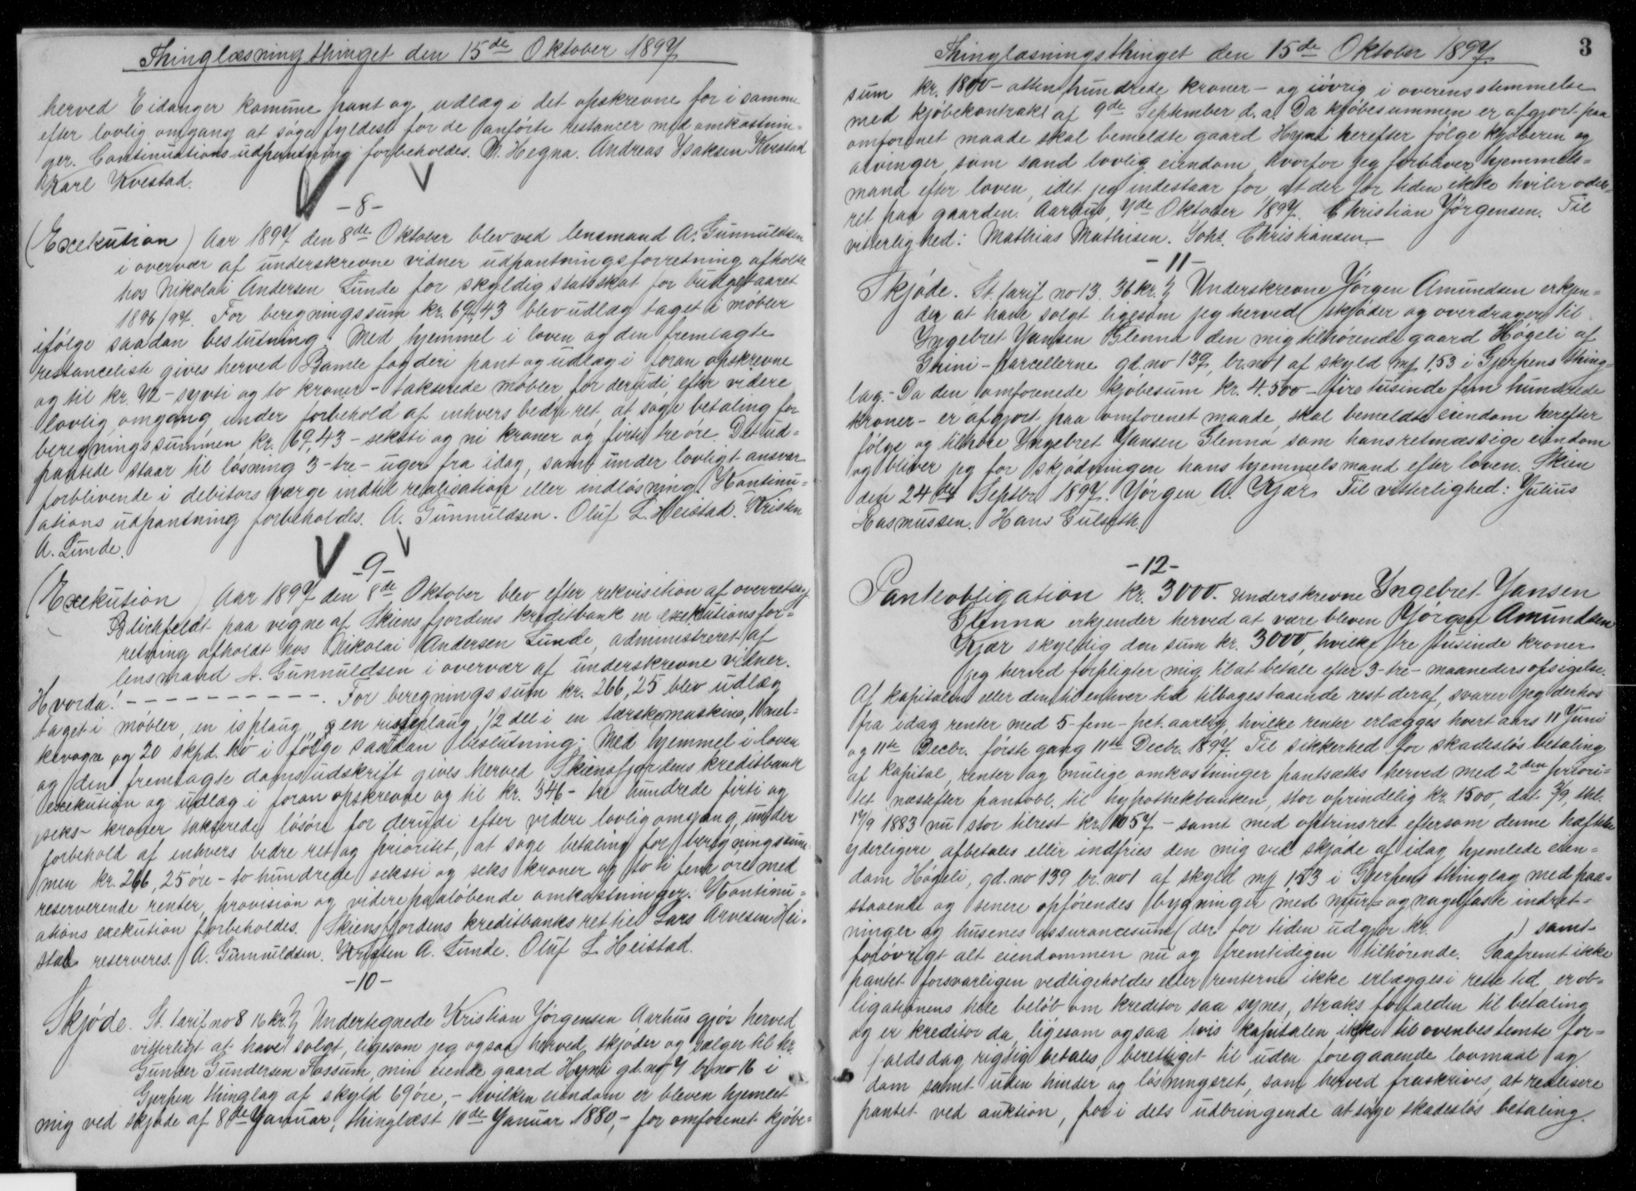 Thinglæsningsthinget den 15de Oktober 1897
herved Eidanger komune pant og udlæg i det opskrevne for i samme
efter lovlig omgang at søge fyldest for de anførte restancer med omkostnin-
ger. Continuations udpantning forbeholdes. Hegna. Andreas Isaksen Kvestad
Karl Kvestad.
-8-
(Exekution) Aar 1897 den 8de Oktober blev ved lensmand A. Gunnuldsen
i overvær af underskrevne vidner udpantningsforretning afholdt
hos Nikolai Andersen Lunde for skyldig statsskat for budgetaaret
1896/97. For beregningssum kr. 69,43 blev udlæg taget i møbler
ifølge saadan beslutning: Med hjemmel i loven og den fremlagte
restanceliste gives herved Bamle fogderi pant og udlæg i foran opskrevne
og til kr. 72 - sytti og to kroner - takserede møbler for derudi efter videre
lovlig omgang, under forbehold af enhvers bedre ret, at søge betaling for
beregningssummen kr. 69,43 - seksti og ni kroner og firti tre øre. Det ud-
pantede staar til løsning 3-tre-uger fra idag, samt under lovligt ansvar
forblivende i debitors værge indtil realisation eller indløsning. Kontinu-
ations udpantning forbeholdes. A. Gunnuldsen. Oluf L. Heistad. Kristen
A. Lunde.
-9-
(Exekution) Aar 1897 den 8de Oktober blev efter rekvisition af overretssag.
Blichfeldt paa vegne af Skiensfjordens kreditbank en exekutionsfor-
retning afholdt hos Nikolai Andersen Lunde, administreret af
lensmand A. Gunnuldsen i overvær af underskrevne vidner.
Hvorda! - - - - - - - - - - - For beregningssum kr. 266,25 blev udlæg
taget i møbler, en isplaug, en ringplaug, 1/2 del i en tærskemaskine, 1 mel-
kevogn og 20 skpd. hø i følge saadan beslutning: Med hjemmel i loven
og den fremlagte domsudskrift gives herved Skiensfjordens kreditbank
exekution og udlæg i foran opskrevne og til kr. 346 - tre hundrede firti og
seks - kroner takserede løsøre for derudi efter videre lovlig omgang, under
forbehold af enhvers bedre ret og prioritet, at søge betaling for beregningssum-
men kr. 266,25 øre - to hundrede seksti og seks kroner og to ti fem øre med
reserverende renter, provision og videre paaløbende omkostninger. Kontinu-
ations exekution forbeholdes. Skiensfjordens kreditbanks ret til Lars Arvesen Hei-
stad reserveres. A. Gunnuldsen. Kristen A. Lunde. Oluf L. Heistad.
-10-
Skjøde. St. tarif no 8 16 kr. Undertegnede Kristian Jørgensen Aarhus gjør herved
vitterligt at have solgt, ligesom jeg ogsaa herved skjøder og sælger til hr.
Gunder Gundersen Fossum, min eiende gaard Hyni gd. no 7 br. no 16 i
Gjerpen thinglag af skyld 69 øre, - hvilken eiendom er bleven hjemlet
mig ved skjøde af 8de Januar, thinglæst 10de Januar 1880, - for omforenet kjøbe-
3
Thinglæsningsthinget den 15de Oktober 1897
sum kr. 1800 - atten hundrede kroner - og iøvrig i overensstemmelse
med kjøbekontrakt af 9de September d. a. Da kjøbesummen er afgjort paa
omforenet maade skal bemeldte gaard Hyni herefter følge kjøberen og
arvinger, som sand lovlig eiendom, hvorfor jeg forbliver hjemmels-
mand efter loven, idet jeg indestaar for at der for tiden ikke hviler odels-
ret paa gaarden. Aarhus, 7de Oktober 1897. Christian Jørgensen. Til
vitterlighed: Mathias Mathisen. Johs. Christiansen.
-11-
Skjøde. St. tarif no 13. 36 kr. Underskrevne Jørgen Amundsen erkjen-
der at have solgt ligesom jeg herved skjøder og overdrager til
Yngebret Jansen Glenna den mig tilhørende gaard Høgeli af
Grini-parcellerne gd. no 139, br. no 1 af skyld m/ 1,53 i Gjerpens thing-
lag. - Da den omforenede kjøbesum kr. 4.500 - fire tusinde fem hundrede
kroner - er afgjort paa omforenet maade, skal bemeldte eiendom herefter
følge og tilhøre Yngebret Jansen Glenna som hans retmæssige eiendom
og bliver jeg for skjødningen hans hjemmelsmand efter loven. Skien
den 24de Septbr. 1897. Jørgen A. Kjær. Til vitterlighed: Julius
Rasmussen. Hans Gulseth.
-12-
Panteobligation kr. 3000. Underskrevne Yngebret Jansen
Glenna erkjender herved at være bleven Jørgen Amundsen
Kjær skyldig den sum kr. 3000, hvilke tre tusinde kroner
jeg herved forpligter mig til at betale efter 3-tre-maaneders opsigelse.
Af kapitalen eller den til enhver tid tilbagestaaende rest deraf, svarer jeg derhos
fra idag renter med 5-fem-pct. aarlig, hvilke renter erlægges hvert aars 11 Juni
og 11te Decbr. første gang 11te Decbr. 1897. Til sikkerhed for skadesløs betaling
af kapital, renter og mulige omkostninger pantsættes herved med 2den priori-
tet næstefter pantobl. til hypothekbanken, stor oprindelig kr. 1500, dat. 3/9, thl.
14/9 1883 nu stor tilrest kr. 1057 - samt med optrinsret eftersom denne hæftelse
yderligere afbetales eller indfries den mig ved skjøde af idag hjemlede eien-
dom Høgeli, gd. no 139 br. no 1 af skyld m/ 1,53 i Gjerpens thinglag med paa-
staaende og senere opførendes bygninger med mur- og nagelfaste indret-
ninger og husenes assurancesum (der for tiden udgjør kr. ) samt
forøvrigt alt eiendommen nu og fremtidigen tilhørende. Saafremt ikke
pantet forsvarligen vedligeholdes eller renterne ikke erlægges i rette tid, er ob-
ligationens hele beløb, om kreditor saa synes, straks forfalden til betaling
og er kreditor da, ligesom ogsaa hvis kapitalen ikke til ovenbestemte for-
faldsdag rigtig betales, berettiget til uden foregaaende lovmaal og
dom samt uden hinder og løsningsret, som herved fraskrives, at realisere
pantet ved auktion, for i dets udbringende at søge skadesløs betaling